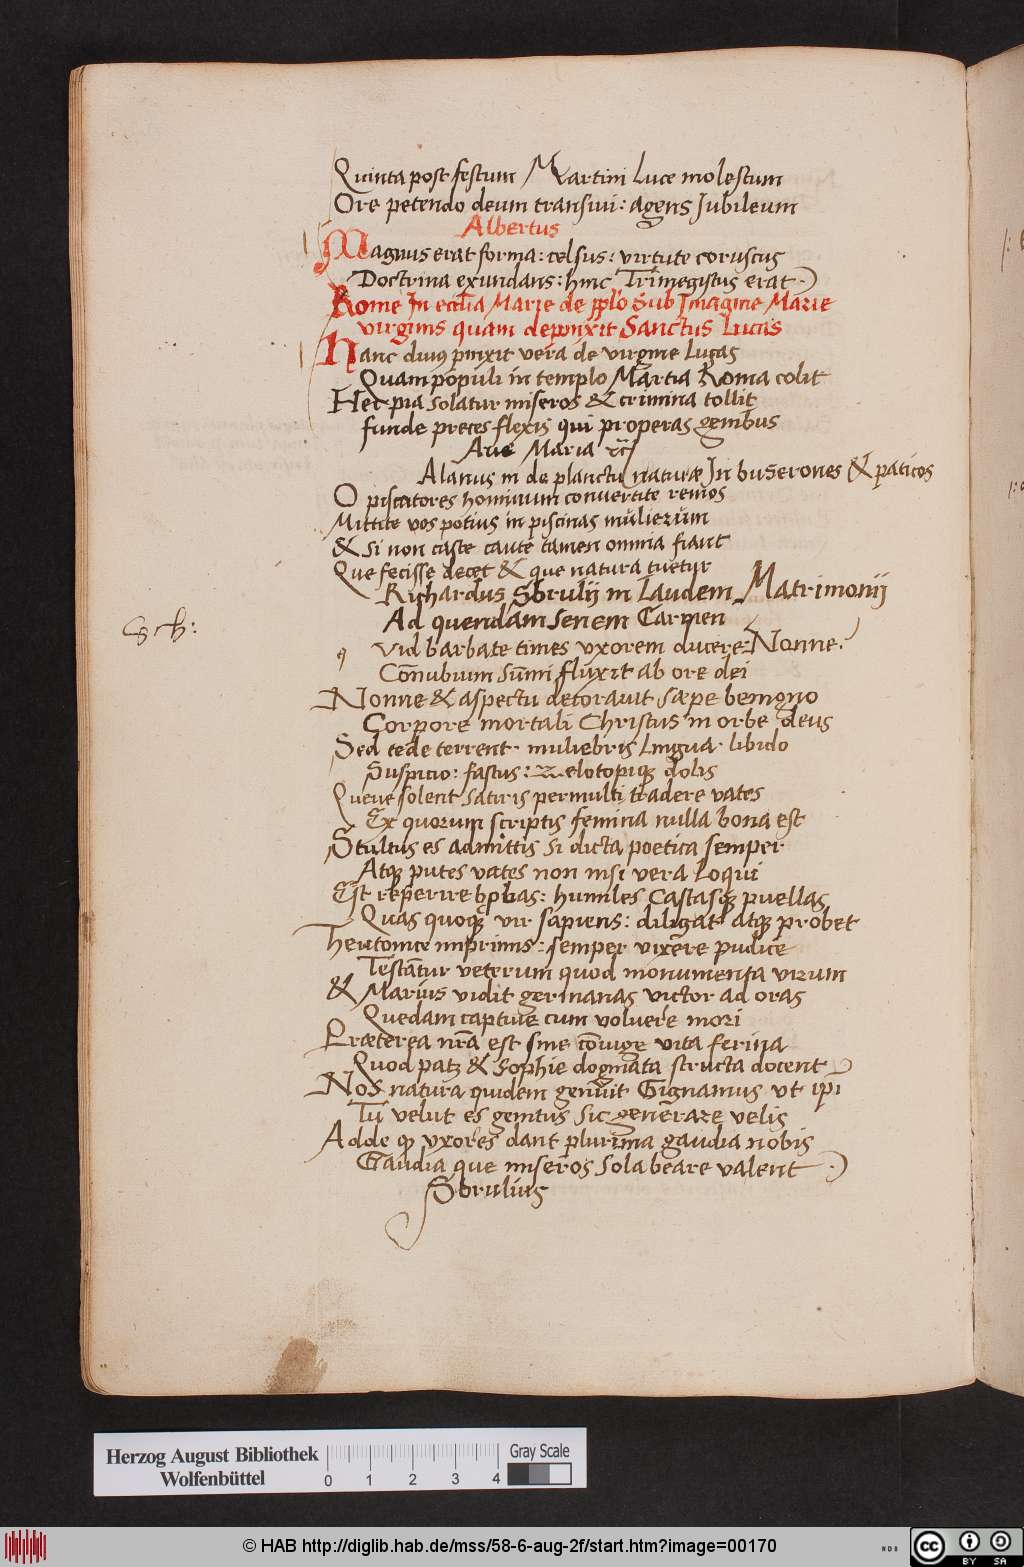 Quinta post festum Martini Luce molestum
Ore petendo deum transiui: agens Jubileum
Albertus
Magnus erat forma: celsus: virtute coruscus
Doctrina exundans: hinc Trimegistus erat
Rome In ecclia Marie de pplo Sub Imagine Marie
virginis quam depinxit Sanctus Lucas
Hanc diuus pinxit vera de virgine Lucas
Quam populi in templo Martia Roma colit
Hec pia solatur miseros & crimina tollit
funde preces flexis qui properas genibus
Aue Maria
Alanus in de planctu naturæ In buserones & paticos
O piscatores hominum conuertite remos
Mittite vos potius in piscinas mulierum
& si non caste caute tamen omnia fiant
Que fecisse decet & que natura tuetur
Richardus Sbrulij in Laudem Matrimonij
Ad quendam senem Carmen
Sch:
q vid barbate times vxorem ducere: Nonne
Cōnubium sūmi fluxit ab ore dei
Nonne & aspectu decorauit sæpe benigno
Corpore mortali Christus in orbe deus
Sed te de terrent muliebris lingua libido
Suspicio: fastus: zelotopiq dolis
Queue solent satiris permulti tradere vates
Ex quorum scriptis femina nulla bona est
Stultus es admittis si dicta poetica semper
Atq putes vates non nisi vera loqui
Est reperire probas: humiles Castasq puellas
Quas quoq vir sapiens: diligat atq probet
Theutonice inprimis: semper vixere pudice
Testātur veterum quod monumenta virum
& Marius vidit germanas victor ad oras
Quedam captiue cum voluere mori
Præterea nrā est sine cōiuge vita ferina
Quod patz & sophie dogmata structa docent
Nos natura quidem genuit Gignamus vt ipi
Tu velut es genitus sic generare velis
Adde q vxores dant plurima gaudia nobis
Gaudia que miseros sola beare valent
Sbrulius
Herzog August Bibliothek
Wolfenbüttel
0 1 2 3 4
Gray Scale
© HAB http://diglib.hab.de/mss/58-6-aug-2f/start.htm?image=00170
cc BY SA